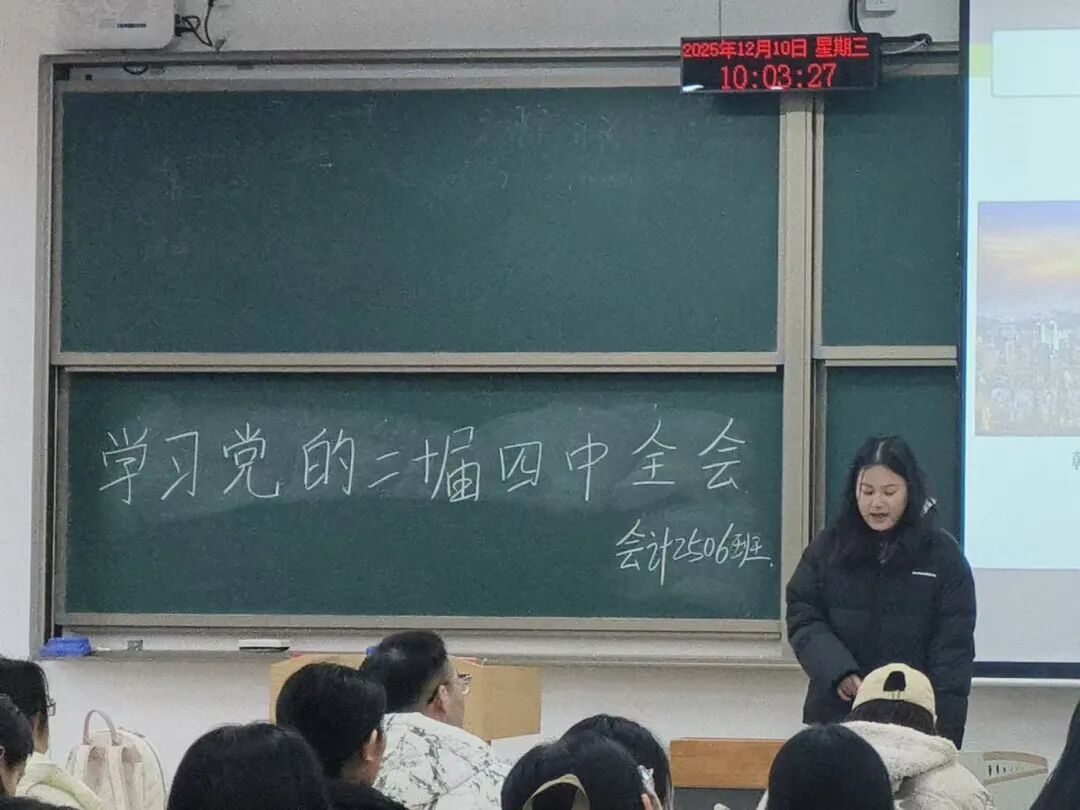 2025年12月10日 星期三
10:03:27
学习党的二十届四中全会
会计2506班.